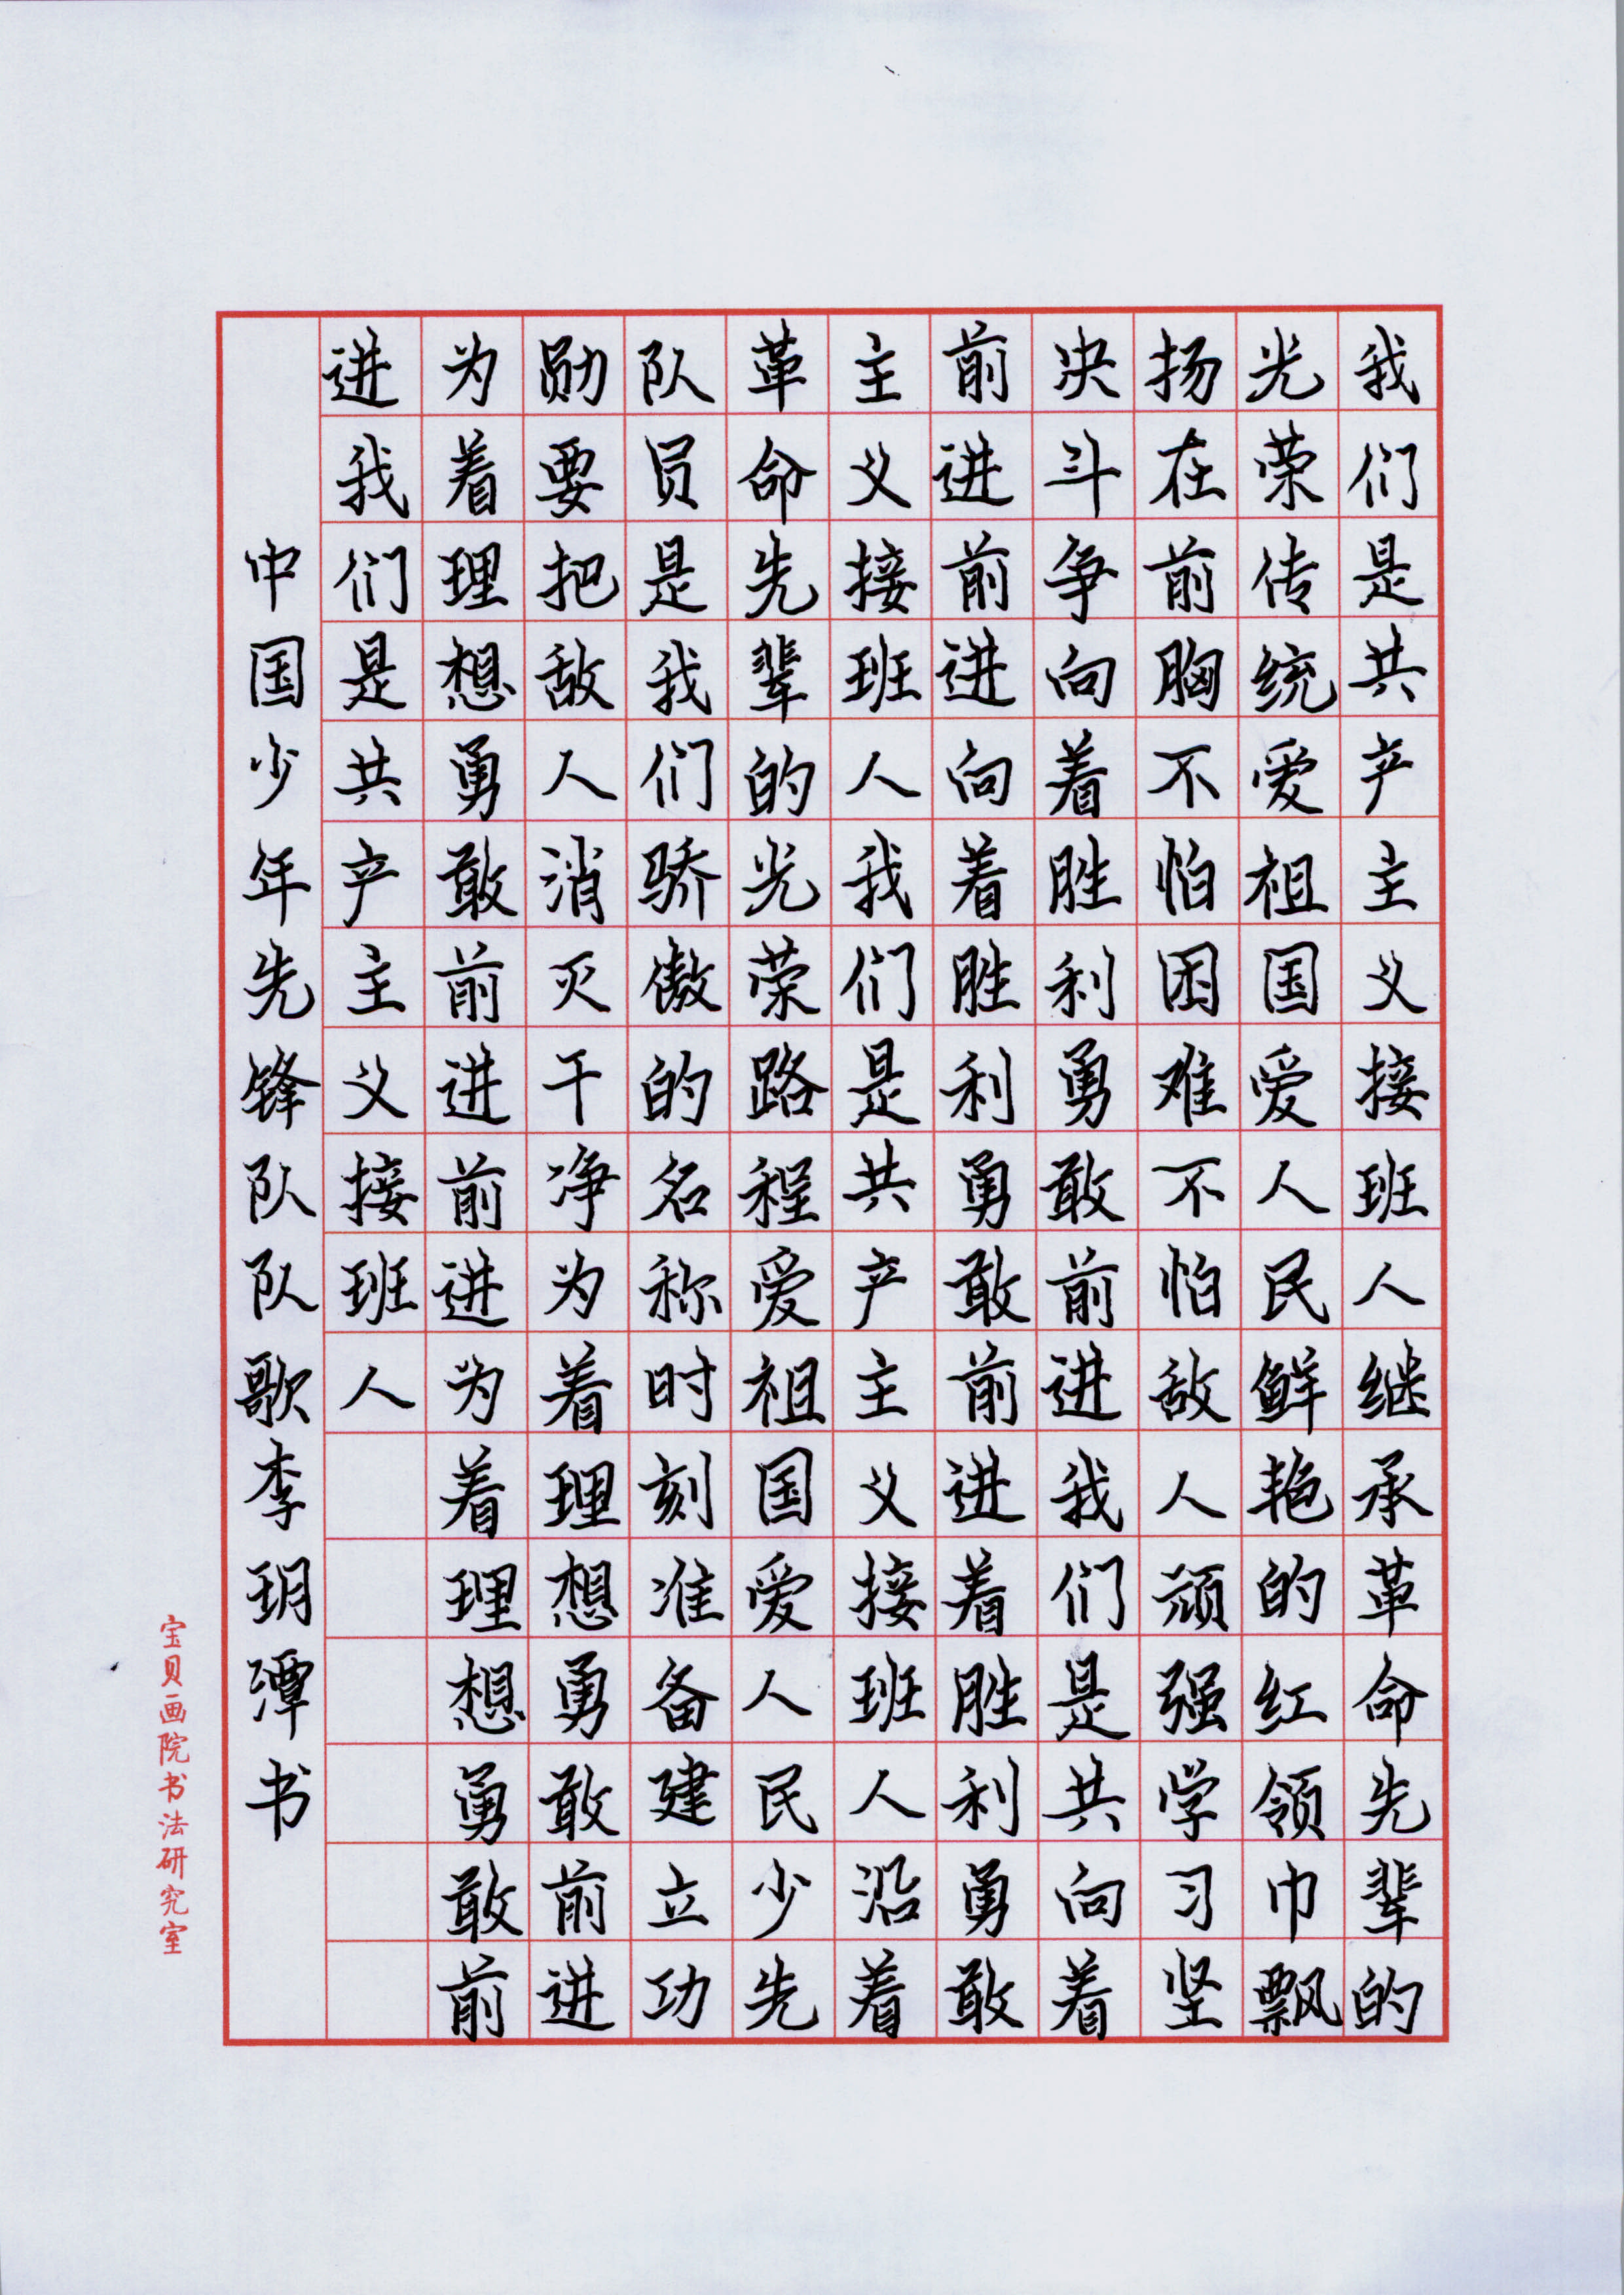 我们是共产主义接班人继承革命先辈的
光荣传统爱祖国爱人民鲜艳的红领巾飘
扬在前胸不怕困难不怕敌人顽强学习坚
决斗争向着胜利勇敢前进我们是共向着
前进前进向着胜利勇敢前进着胜利勇敢
主义接班人我们是共产主义接班人沿着
革命先辈的光荣路程爱祖国爱人民少先
队员是我们骄傲的名称时刻准备建立功
勋要把敌人消灭干净为着理想勇敢前进
为着理想勇敢前进前进为着理想勇敢前
进我们是共产主义接班人
中国少年先锋队队歌李玥潭书
宝贝画院书法研究室